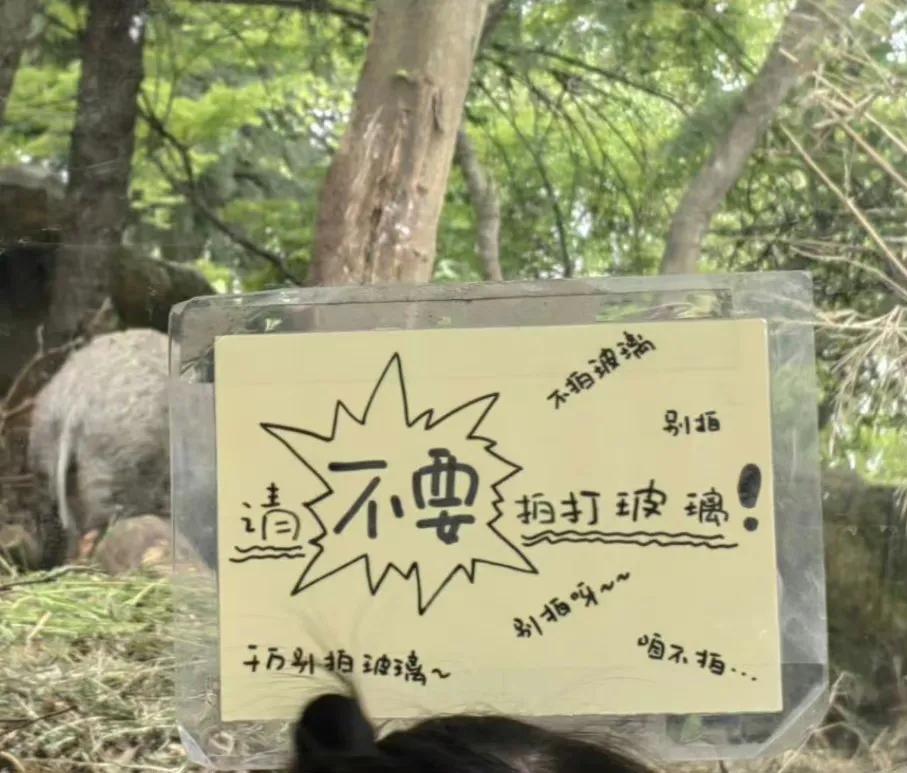 不拍玻璃
别拍
请不要拍打玻璃!
别拍呀~~
千万别拍玻璃~
咱不拍...